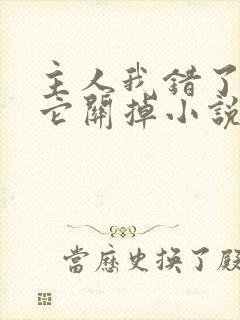 主人我错了
它關掉小說
當歷史換了殿